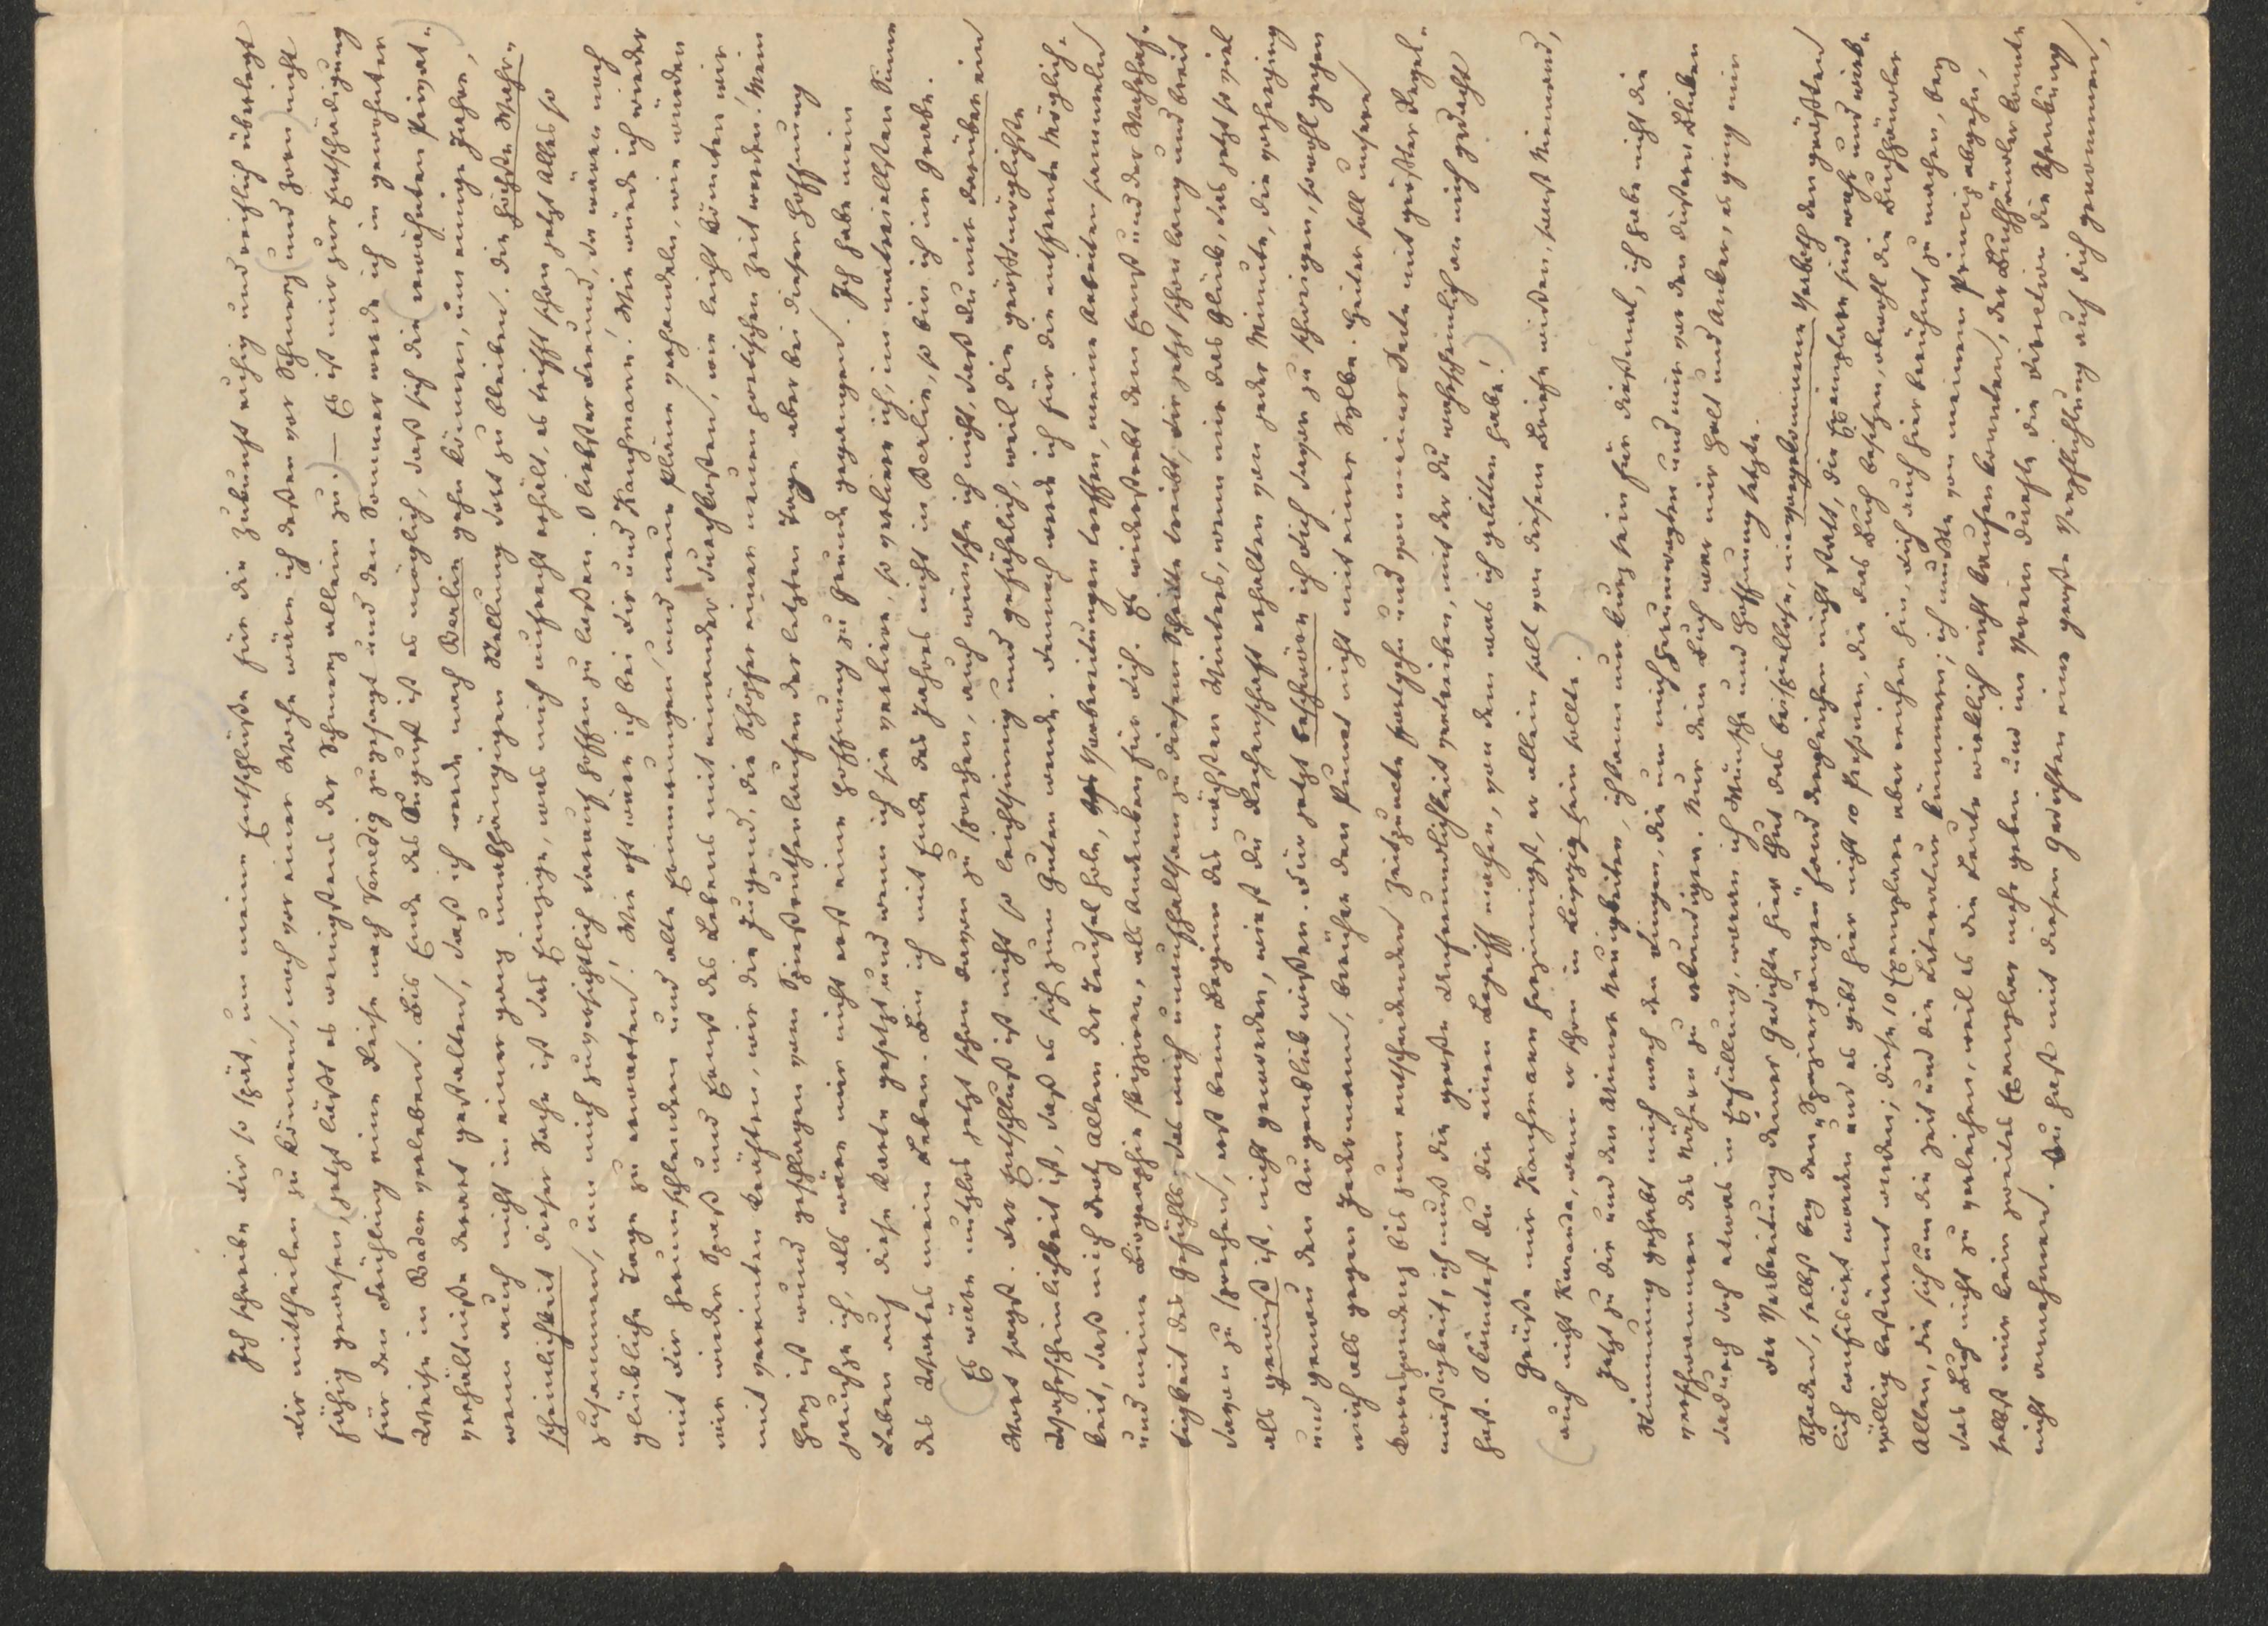 Ich schreibe dir so spät, um meine Entschlüsse für die Zukunft ruhig und reiflich überlegt
dir mittheilen zu können, noch vor einer Woche wäre ich dessen vor Schmerz (und Zorn) nicht
fähig gewesen, (jetzt läßt es wenigstens der Schmerz allein zu.) — Es ist mir zur Entschädigung
für den Frühling eine Reise nach Venedig zugesagt und den Sommer werde ich in gewohnter
Weise in Baden verleben. Bis Ende des August ist es möglich, daß sich die (erwähnten Privat-)
verhältniße derart gestalten, daß ich werde nach Berlin gehn können, um einige Jahre,
wenn auch nicht in einer ganz unabhängigen Stellung dort zu bleiben. Die höchste Wahr-
scheinlichkeit dieser Sache ist das Einzige, was mich aufrecht erhält, es trifft schon jetzt Alles so
zusammen, um mich zuversichtlich darauf hoffen zu laßen. O liebster Freund, da wären noch
glückliche Tage zu erwarten! Wie oft wäre ich bei dir und Kaufmann! Wie würde ich wieder
mit dir herumschlendern und alte Erinnerungen und neue Pläne verhandeln, wie würden
wir wieder Spaß und Ernst des Lebens mit einander durchkosten, wie leicht könnten wir
mit vereinten Kräften, wir die Jugend, die Schöpfer einer neuen poetischen Zeit werden! Mein
Herz ist wund geschlagen vom Spießruthenlaufen der letzten Tage aber bei dieser Hoffnung
jauchze ich, als wäre mir nicht erst eine Hoffnung zu Grunde gegangen. Ich habe mein
Leben auf diese Karte gesetzt und wenn ich sie verliere, so verliere ich, im materiellsten Sinne
des Wortes mein Leben. Bin ich mit Ende des Jahres nicht in Berlin, so bin ich im Grabe.
(Es wäre nutzlos jetzt schon davon zu sprechen, auch wünsche ich nicht, daß du mir darüber ein
Wort sagst. Der Entschluß ist nicht so leichtsinnig und gefährlich, weil die größtmöglichste
Wahrscheinlichkeit ist, daß es sich zum Guten wende. Dennoch werde ich für die entfernte Möglich-
keit, daß mich trotz Allem der Teufel hole, Vorbereitungen treffen, meine Arbeiten sammeln
und meine Biographie skizziren, als Andenken für dich. Es widerstrebt dem Ernst und der Wahrhaf-
tigkeit des Gefühls, das mich unaufhaltsam zu diesem Schritte treibt, dir jetzt schon lang und breit
davon zu sprechen, erst beim Beginn des nächsten Winters, wenn mir das Glück, das jetzt so viel
als gewiß ist, nicht geworden, wirst du Rechenschaft erhalten von jeder Minute, die verging
und genau den Augenblick wißen. Für jetzt beschwöre ich dich davon zu schweigen, sowohl gegen
mich als gegen Jedermann, berühre den Punct nicht mit einer Sylbe. Heiter soll unsere
Correspondenz bis zum entscheidenden Zeitpuncte fortgehn und von meiner Seite mit größter Regel-
mäßigkeit, ich muß die große Unfreundlichkeit vertreiben, mit der du wahrscheinlich an mich gedacht
hast. O könntest du dir einen Begriff machen, von dem was ich gelitten habe!)
Grüße mir Kaufmann herzinnigst, er allein soll von diesem Briefe wißen, sonst Niemand,
(auch nicht Kuranda, wenn er schon in Leipzig sein sollte.)
Jetzt zu dir und den Wiener Neuigkeiten, ich kann nur kurz sein für dießmal, ich habe nicht die
Stimmung gehabt mich nach den Dingen, die um mich herum und mir vor den düstern Blicken
verschwammen des Nähern zu erkundigen. Nur dein Buch war mir Halt und Anker, es ging mir
dadurch doch etwas in Erfüllung, woran ich Wünsche und Hoffnung setzte.
Der Verbreitung deiner Gedichte hier thut das beispiellose, nie vorgekommene Verboth den größten
Schaden, selbst bey den „Spaziergängen" fand dergleichen nicht statt, die Exemplare sind wahr und wirk-
lich confiscirt worden und es gibt hier nicht 10 Personen, die das Buch besitzen, obwohl die Buchhändler
völlig bestürmt werden; diese 10 Exemplare aber reichen hin, dich auch hier berühmt zu machen, bey
Allen, die sich um die Zeit und die Literatur kümmern; ich mußte von meinem Princip abgehn,
das Buch nicht zu verleihen, weil es die Leute wirklich nicht kaufen konnten, der Buchhändler konnte
selbst mir kein zweites Exemplar mehr geben und im Verein durfte die Direction die Schenkung
nicht annehmen. Du hast mit diesen Gedichten eine große Verpflichtung auf dich genommen,